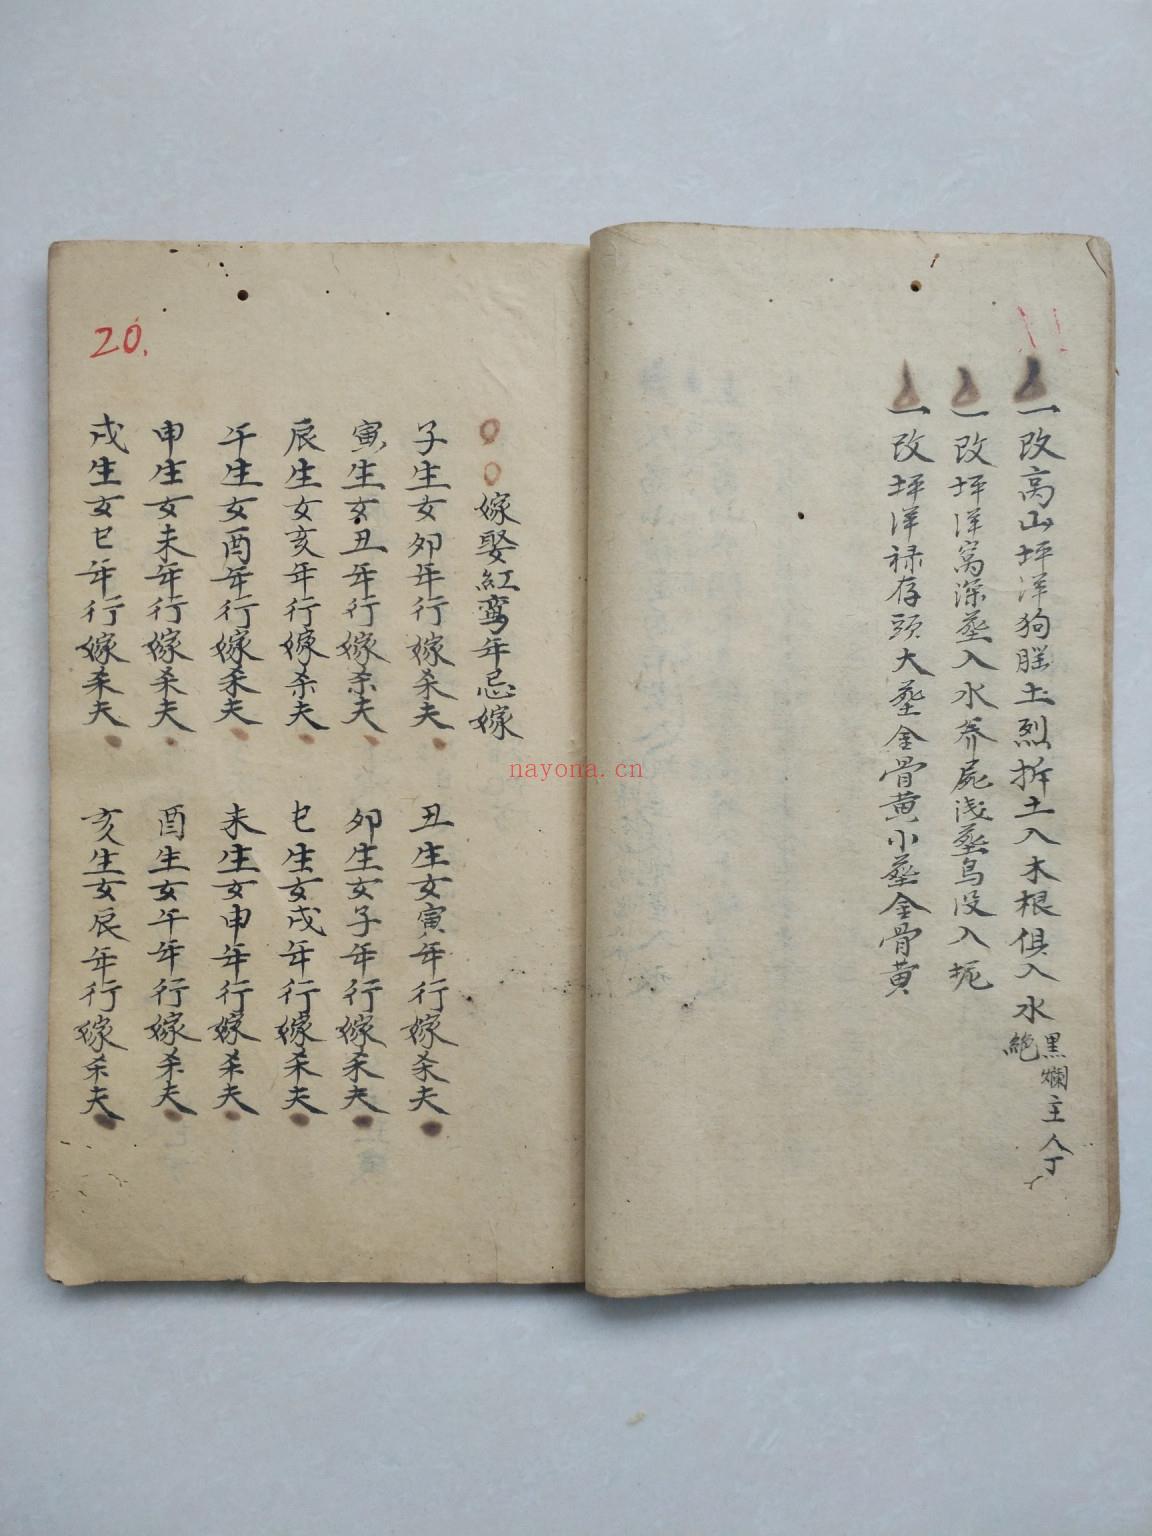 一改高山坪洋狗腿土烈拆土入木根俱入水黑爛主人丁絶
一改坪洋窩深塟入水养屍浅塟烏没入坭
一改坪洋禄存頭大塟金骨黄小塟金骨黄
20.
嫁娶紅鸾年忌嫁
子生女卯年行嫁杀夫 丑生女寅年行嫁杀夫
寅生女丑年行嫁杀夫 卯生女子年行嫁杀夫
辰生女亥年行嫁杀夫 巳生女戌年行嫁杀夫
午生女酉年行嫁杀夫 未生女申年行嫁杀夫
申生女未年行嫁杀夫 酉生女午年行嫁杀夫
戌生女巳年行嫁杀夫 亥生女辰年行嫁杀夫
nayona.cn